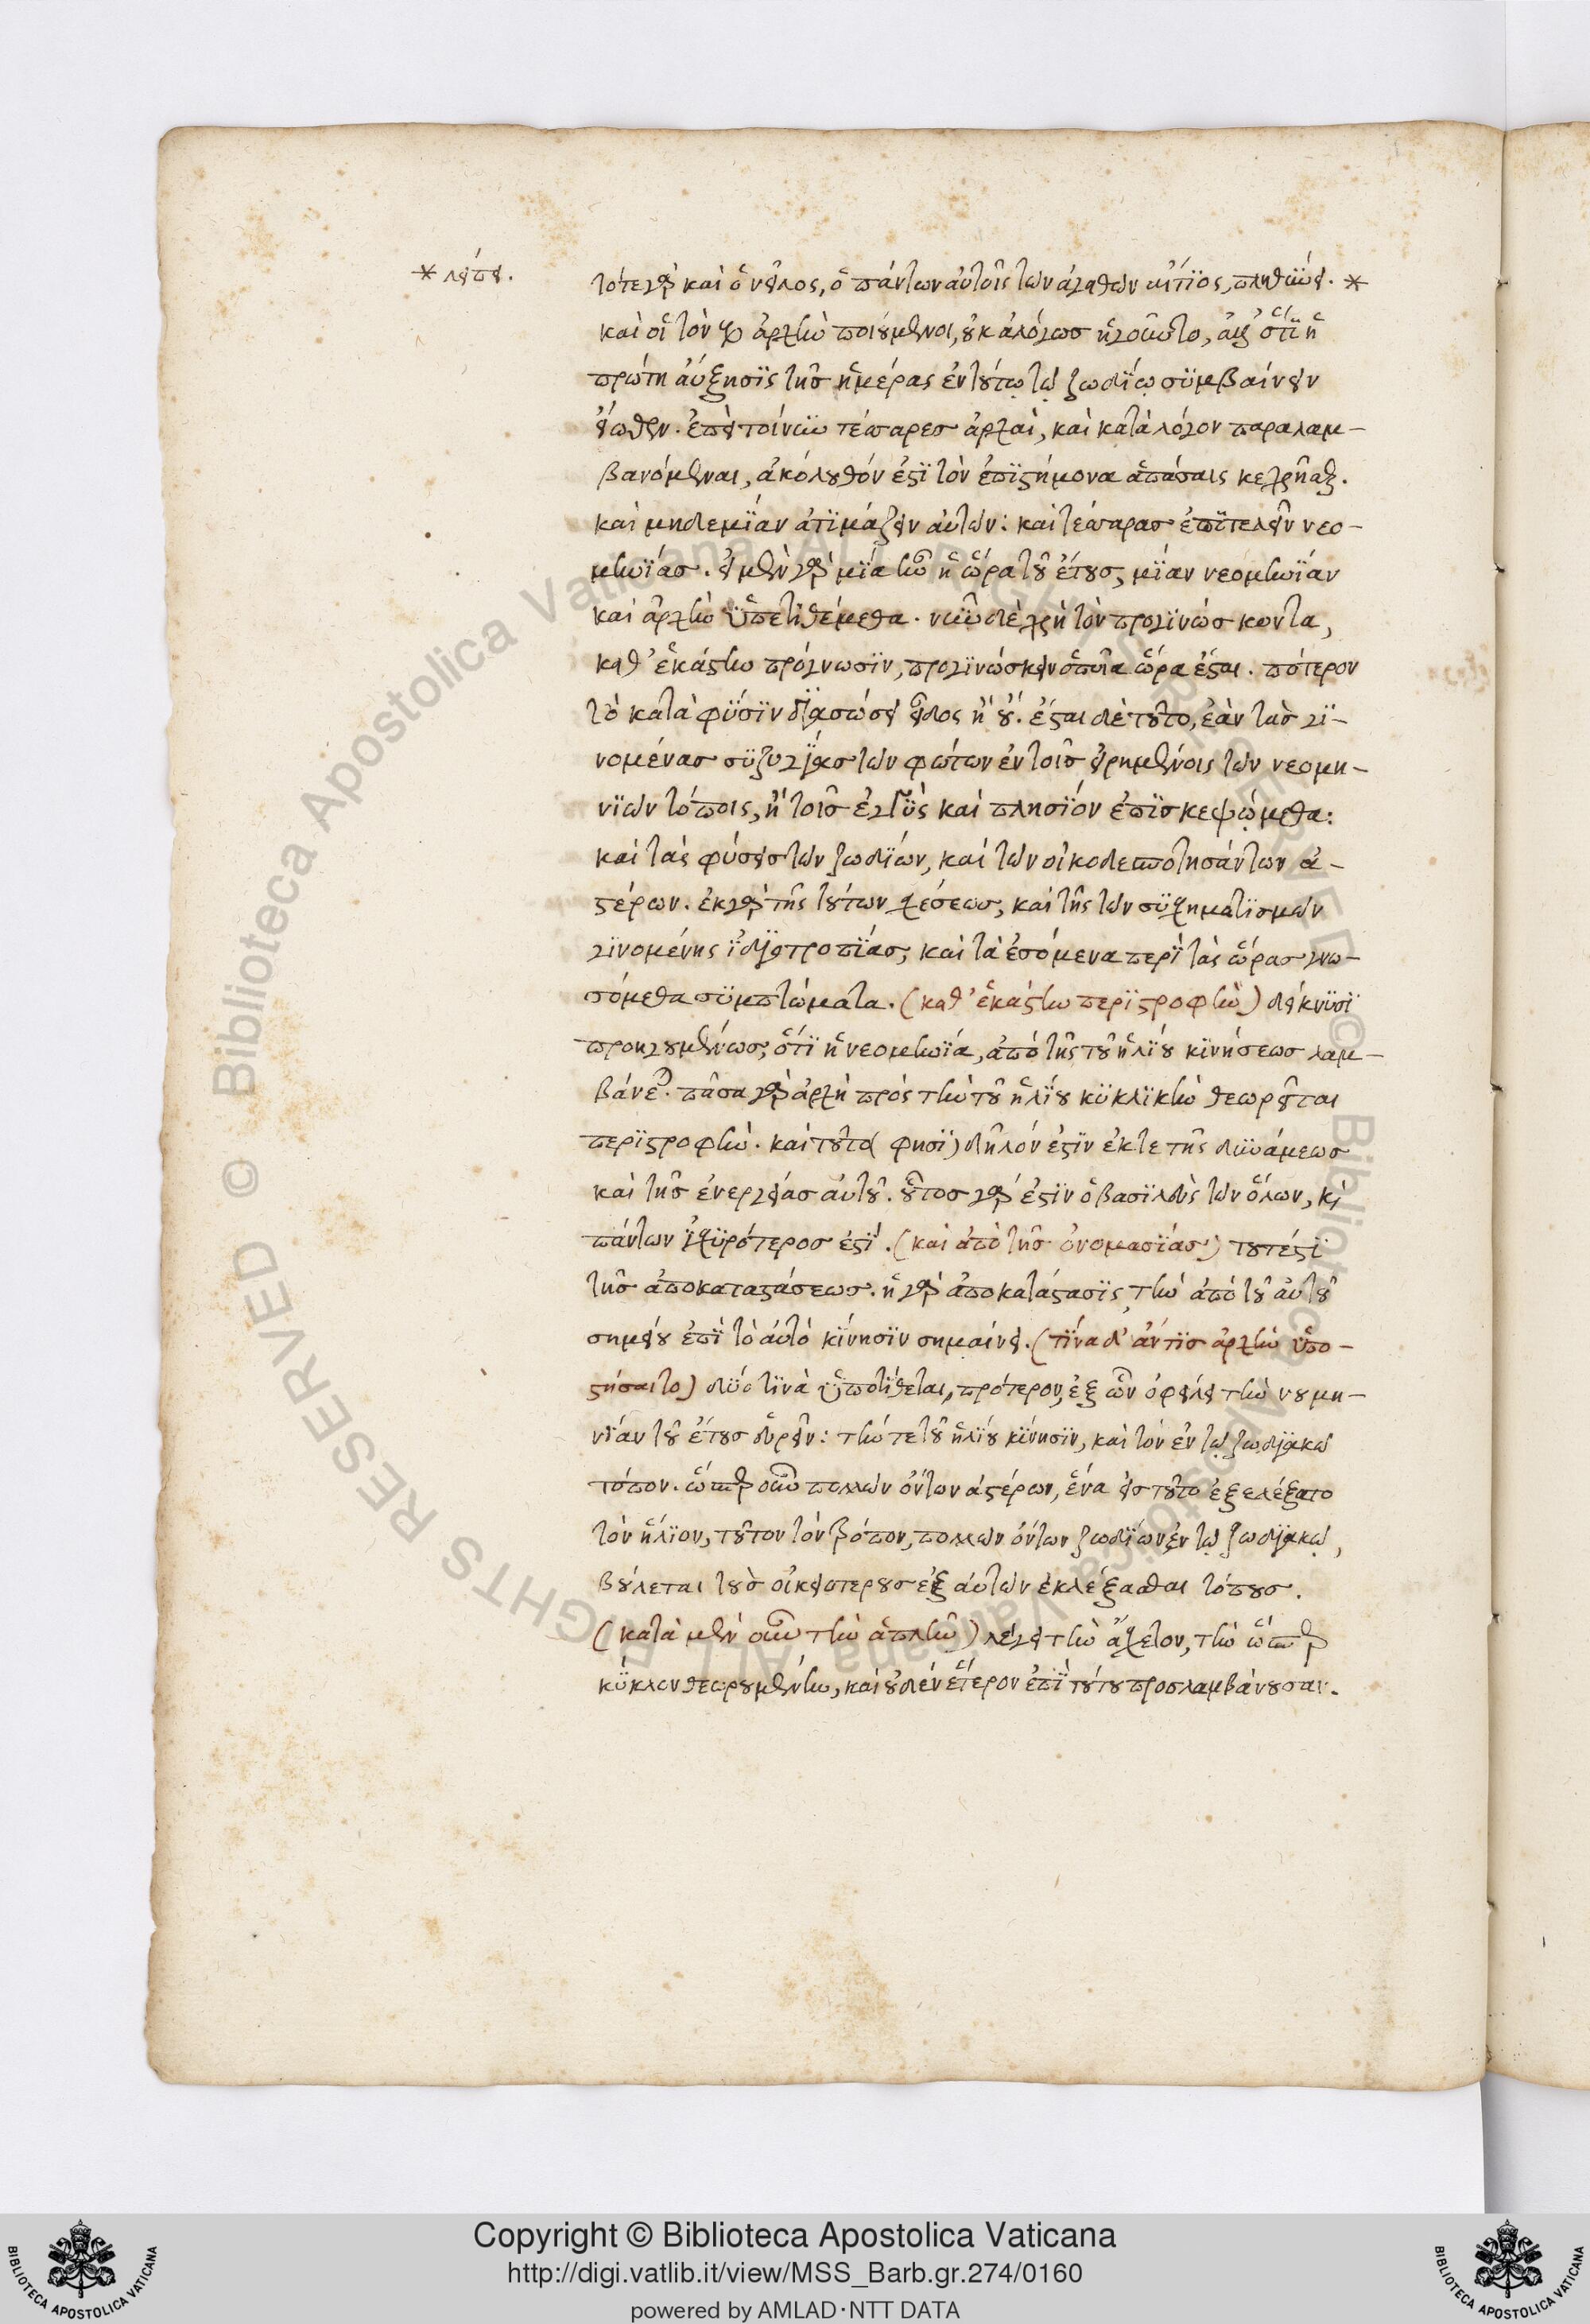 * λείπει.
τότε γὰρ καὶ ὁ νεῖλος, ὁ πάντων αὐτοῖς τῶν ἀγαθῶν αἴτϊος, πληθύνει. *
καὶ οἱ τὸν ♑ ἀρχὴν ποιούμενοι, οὐκ ἀλόγως ἡγοῦντο, διὰ ὅτι ἡ
πρώτη αὔξησϊς τῆς ἡμέρας ἐν τούτῳ τῷ ζωδίῳ συμβαίνειν
εἴωθεν. ἐπεὶ τοίνυν τέσσαρες ἀρχαὶ, καὶ κατὰ λόγον παραλαμ-
βανόμεναι, ἀκόλουθόν ἐστϊ τὸν ἐπϊστήμονα ἁπάσαις κεχρῆσθαι.
καὶ μηδεμϊάν ἀτϊμάζειν αὐτῶν: καὶ τέσσαρας ἐπϊτελεῖν νεο-
μηνϊάς. εἰ μὲν γὰρ μϊα ἦν ἡ ὥρα τοῦ ἔτους, μϊαν νεομηνϊάν
καὶ ἀρχὴν ὑπετϊθέμεθα. νῦν δὲ χρὴ τὸν προγϊνώσκοντα,
καθ' ἑκάστην πρόγνωσϊν, προγϊνώσκειν ὁποῖα ὥρα ἔσται. πότερον
τὸ κατὰ φύσϊν διασώσει εἶδος ἢ οὔ. ἔσται δὲ τοῦτο, ἐὰν τὰς γϊ-
νομένας συζυγϊας τῶν φώτων ἐν τοῖς εἰρημένοις τῶν νεομη-
νϊών τόποις, ἢ τοῖς ἐγγὺς καὶ πλησϊόν ἐπϊσκεψώμεθα:
καὶ τὰς φύσεις τῶν ζωδϊών, καὶ τῶν οἰκοδεσποτησάντων ἀ-
στέρων. ἐκ γὰρ τῆς τούτων σχέσεως, καὶ τῆς τῶν συσχηματϊσμῶν
γϊνομένης ἰδϊοτροπϊάς, καὶ τὰ ἐσόμενα περὶ τὰς ὥρας γνω-
σόμεθα συμπτώματα. (καθ' ἑκάστην περϊστροφὴν) δείκνυσϊ
προηγουμένως, ὅτϊ ἡ νεομηνϊά, ἀπὸ τῆς τοῦ ἡλϊου κϊνήσεως λαμ-
βάνεται. πᾶσα γὰρ ἀρχὴ πρὸς τὴν τοῦ ἡλϊου κυκλϊκὴν θεωρεῖται
περϊστροφὴν. καὶ τοῦτο( φησϊ) δῆλόν ἐστϊν ἔκ τε τῆς δυνάμεως
καὶ τῆς ἐνεργείας αὐτοῦ. οὗτος γὰρ ἐστϊν ὁ βασϊλεὺς τῶν ὅλων, καὶ
πάντων ἰσχυρότερος ἐστϊ. (καὶ ἀπὸ τῆς ὀνομασϊάς) τουτέστϊ
τῆς ἀποκαταστάσεως. ἡ γὰρ ἀποκατάστασϊς, τὴν ἀπὸ τοῦ αὐτοῦ
σημείου ἐπὶ τὸ αὐτὸ κϊνησϊν σημαίνει. (τϊνα δ' ἄν τϊς ἀρχὴν ὑπο-
στήσαιτο) δύο τϊνὰ ὑποτϊθεται, πρότερον, ἐξ ὧν ὀφείλει τὴν νουμη-
νϊαν τοῦ ἔτους εὑρεῖν: τήν τε τοῦ ἡλϊου κϊνησϊν, καὶ τὸν ἐν τῷ ζωδϊακῷ
τόπον. ὥσπερ οὖν πολλῶν ὄντων ἀστέρων, ἕνα εἰς τοῦτο ἐξελέξατο
τὸν ἥλϊον, τοῦτον τὸν τρόπον, πολλῶν ὄντων ζωδϊών ἐν τῷ ζωδϊακῷ,
βούλεται τοὺς οἰκειοτέρους ἐξ αὐτῶν ἐκλέξασθαι τόπους.
(κατὰ μὲν οὖν τὴν ἁπλῆν) λέγει τὴν ἄσχετον, τὴν ὥσπερ
κύκλον θεωρουμένην, καὶ οὐδὲν ἕτερον ἐπὶ τούτου προσλαμβάνουσαν.
Copyright © Biblioteca Apostolica Vaticana
http://digi.vatlib.it/view/MSS_Barb.gr.274/0160
powered by AMLAD·NTT DATA